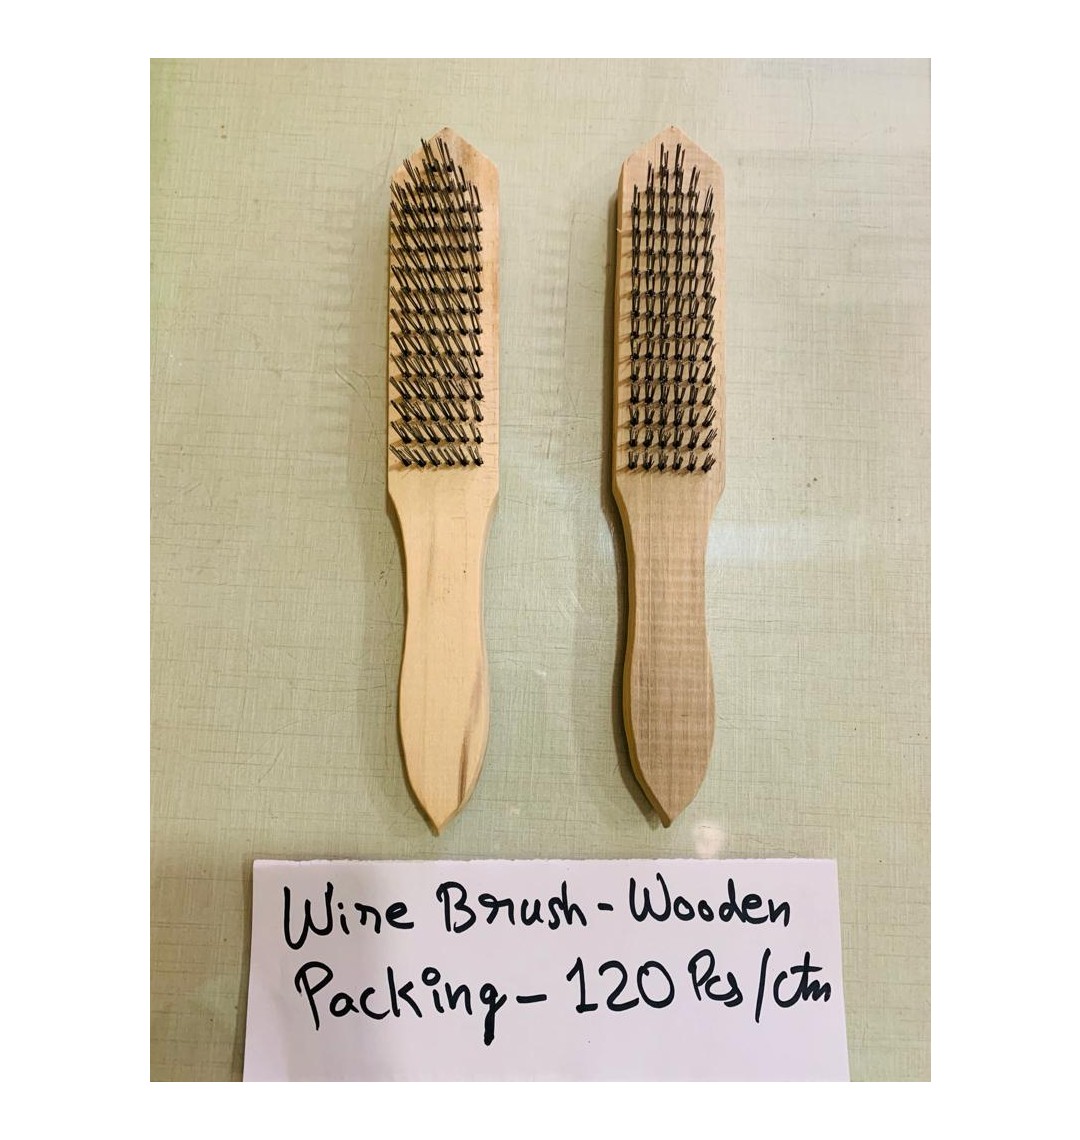 Wire Brush - Wooden
Packing - 120 Pcs/ctn